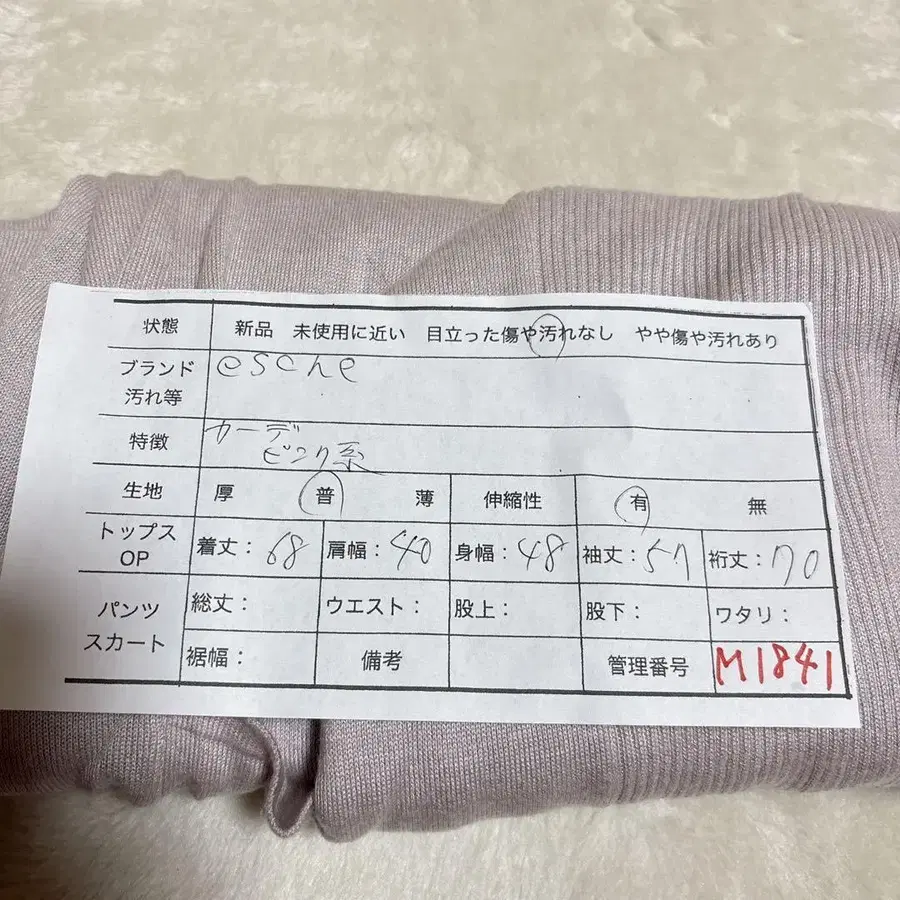 状態 新品 未使用に近い 目立った傷や汚れなし やや傷や汚れあり
ブランド esche
汚れ等
特徴 カーデ
ピンク系
生地 厚 普 薄 伸縮性 有 無
トップス
OP 着丈：68 肩幅：40 身幅：48 袖丈：57 裄丈：70
パンツ
スカート 総丈： ウエスト： 股上： 股下： ワタリ：
裾幅： 備考 管理番号 M1841